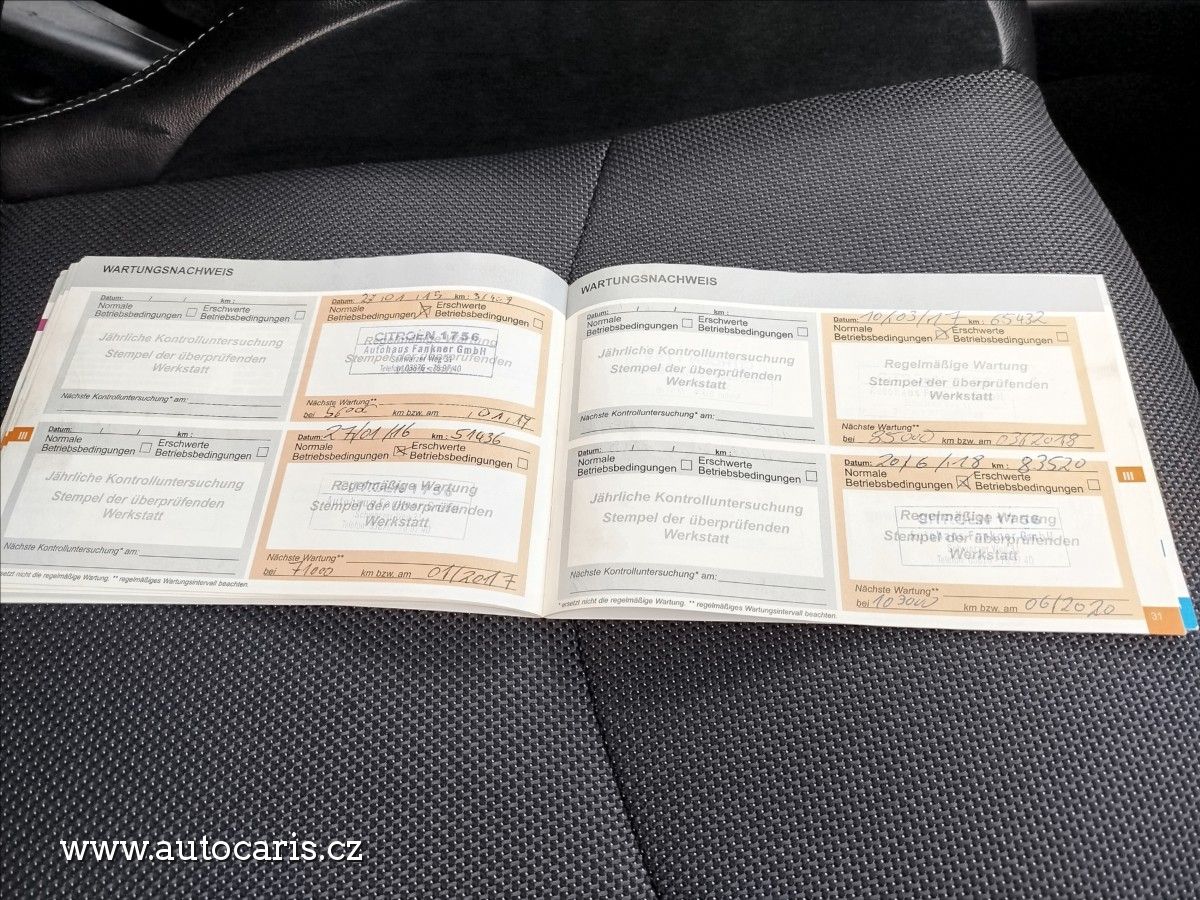 WARTUNGSNACHWEIS
Datum: / / km :
Normale Betriebsbedingungen
Erschwerte Betriebsbedingungen
Jährliche Kontrolluntersuchung
Stempel der überprüfenden
Werkstatt
Nächste Kontrolluntersuchung* am:
Datum: 23/01/15 km :
Normale Betriebsbedingungen
Erschwerte Betriebsbedingungen
CITROEN 1756
Autohaus Fankner GmbH
Nächste Wartung**
bei km bzw. am
Datum: / / km :
Normale Betriebsbedingungen
Erschwerte Betriebsbedingungen
Jährliche Kontrolluntersuchung
Stempel der überprüfenden
Werkstatt
Nächste Kontrolluntersuchung* am:
Datum: 27/01/16 km : 51436
Normale Betriebsbedingungen
Erschwerte Betriebsbedingungen
Regelmäßige Wartung
Stempel der überprüfenden
Werkstatt
Nächste Wartung**
bei 71000 km bzw. am 01/2017
ersetzt nicht die regelmäßige Wartung. ** regelmäßiges Wartungsintervall beachten.
III
WARTUNGSNACHWEIS
Datum: / / km :
Normale Betriebsbedingungen
Erschwerte Betriebsbedingungen
Jährliche Kontrolluntersuchung
Stempel der überprüfenden
Werkstatt
Nächste Kontrolluntersuchung* am:
Datum: 10/03/17 km : 65432
Normale Betriebsbedingungen
Erschwerte Betriebsbedingungen
Regelmäßige Wartung
Stempel der überprüfenden
Werkstatt
Nächste Wartung**
bei 85000 km bzw. am 03/2018
Datum: / / km :
Normale Betriebsbedingungen
Erschwerte Betriebsbedingungen
Jährliche Kontrolluntersuchung
Stempel der überprüfenden
Werkstatt
Nächste Kontrolluntersuchung* am:
Datum: 20/6/18 km : 83520
Normale Betriebsbedingungen
Erschwerte Betriebsbedingungen
Regelmäßige Wartung
Stempel der überprüfenden
Werkstatt
Nächste Wartung**
bei 103000 km bzw. am 06/2020
* ersetzt nicht die regelmäßige Wartung. ** regelmäßiges Wartungsintervall beachten.
III
31
www.autocaris.cz